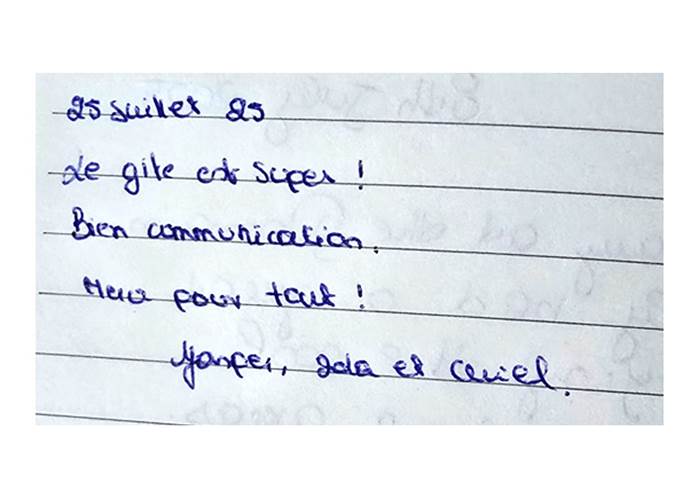 25 Juillet 25
Le gite est super !
Bien communication.
Merci pour tout !
Ida et